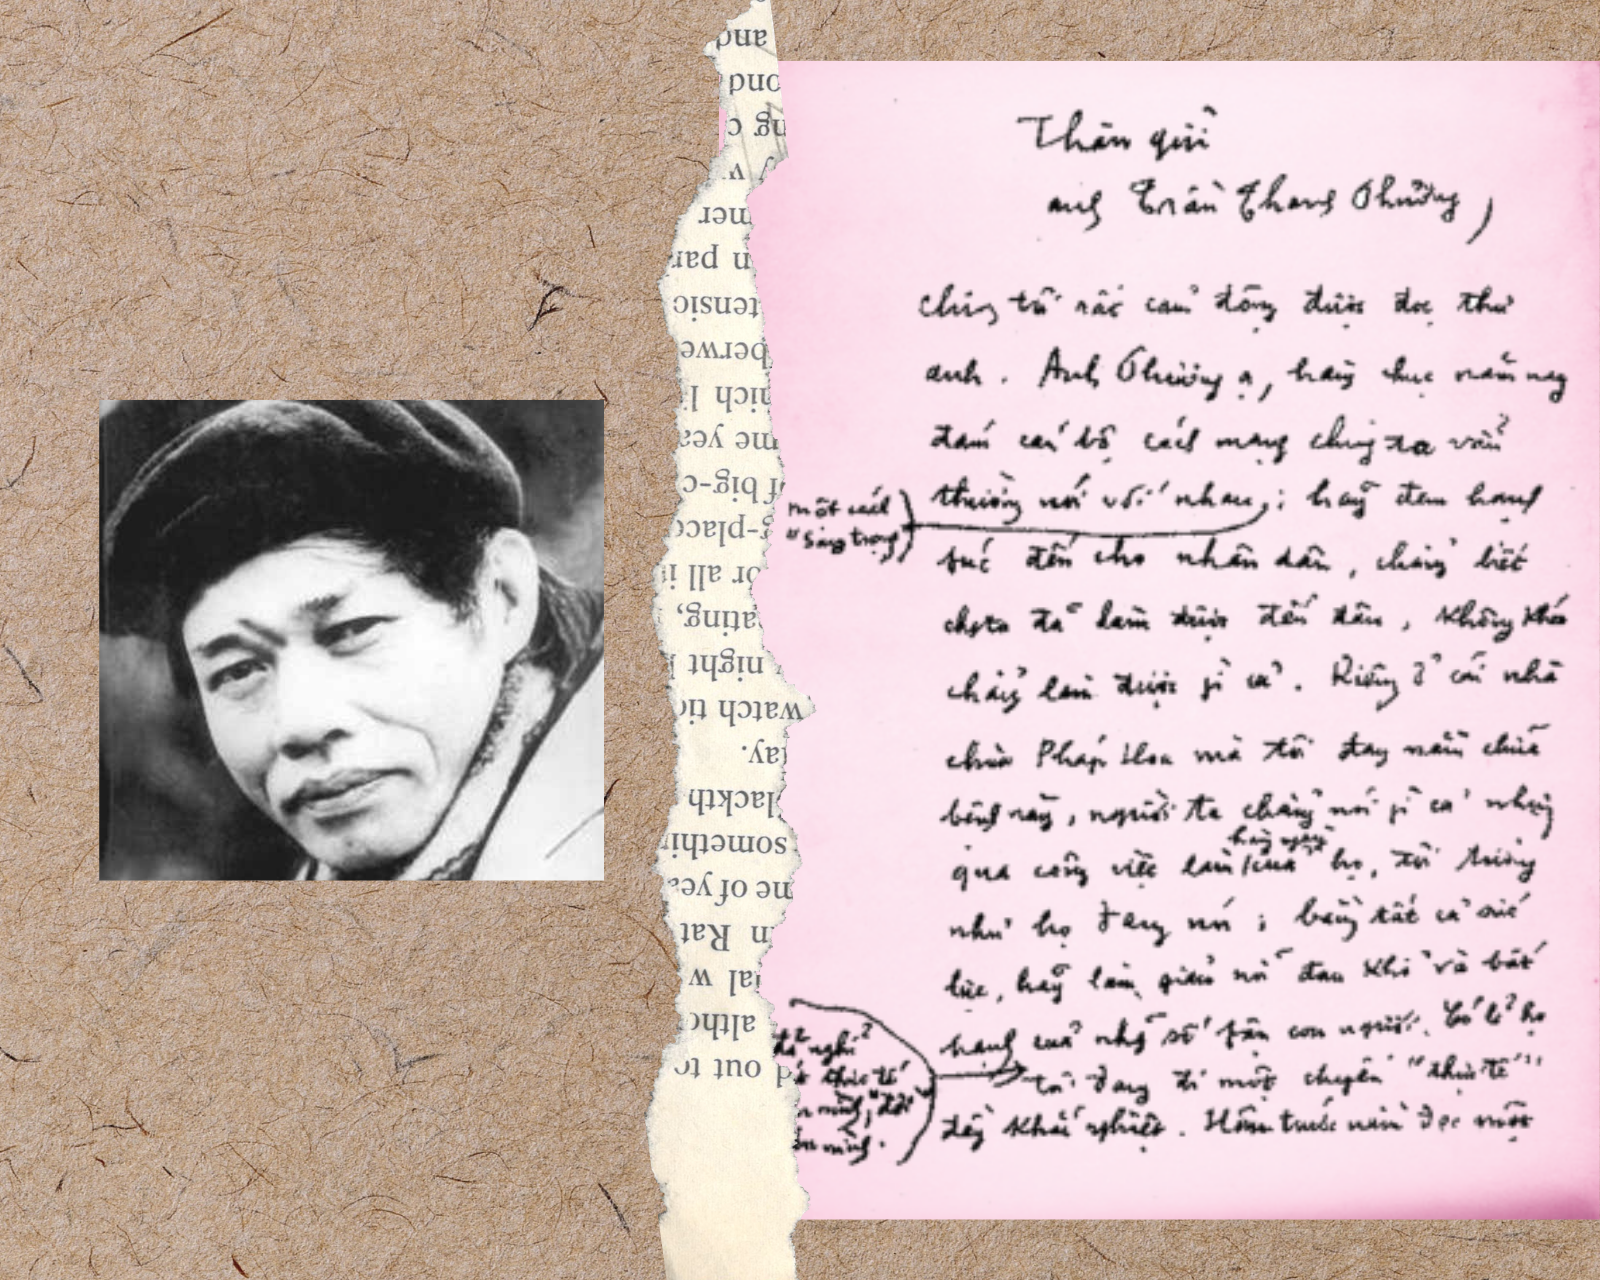 Thân gửi
anh Trần Thanh Phương,
chúng tôi rất cảm động được đọc thư
anh. Anh Phương ạ, hàng chục năm nay
đám cán bộ cách mạng chúng ta vẫn
một cách
"sang trọng"
thường nói với nhau: hãy đem hạnh
phúc đến cho nhân dân, chẳng biết
chúng ta đã làm được đến đâu, không khéo
chẳng làm được gì cả. Riêng ở cái nhà
chùa Pháp Hoa mà tôi đang nằm chữa
bệnh này, người ta chẳng nói gì cả nhưng
hàng ngày
qua công việc làm của họ, tôi tưởng
như họ đang nói: bằng tất cả sức
lực, hãy làm giảm nỗi đau khổ và bất
hạnh của những số phận con người. Có lẽ họ
nghĩ
thực tế
mình, đời
mình.
tôi đang đi một chuyến "thực tế"
đầy khắc nghiệt. Hôm trước nằm đọc một
out to
altho
ial w
n Rat
me of yea
somethi
lackth
ay.
watch tic
night
ating,
or all i
g-place
f big-c
me yea
hich li
berwe
tensic
n para
ner
ng c
ond
and